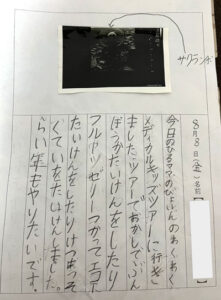 サクランボ
8月8日(金)名前
今日のひるママのびょういんのわくわく
メディカルキッズツアーに行き
ました。ツアーでおかしてぶん
ぼうかたいけんをしたり
フルーツゼリーつかってエコー
たいけんをしたりけつあつそ
くていをたいけんしました。
らい年もやりたいです。